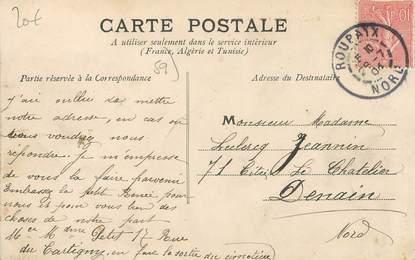 20€
CARTE POSTALE
A utiliser seulement dans le service intérieur
(France, Algérie et Tunisie)
89
Partie réservée à la Correspondance
Adresse du Destinataire
ROUBAIX
NORD
10
J'ai oublié de mettre
notre adresse, en cas où
vous voudriez nous
répondre. Je m'empresse
de vous la faire parvenir
Embrassez la petite Renée pour
nous et pour vous bien des
choses de notre part
Mr et Mme Petit 17 Rue
du Cartigny, en face la sortie du cimetière
Monsieur Madame
Leclercq Jeannin
71 Cité Le Chatelier
Denain
Nord